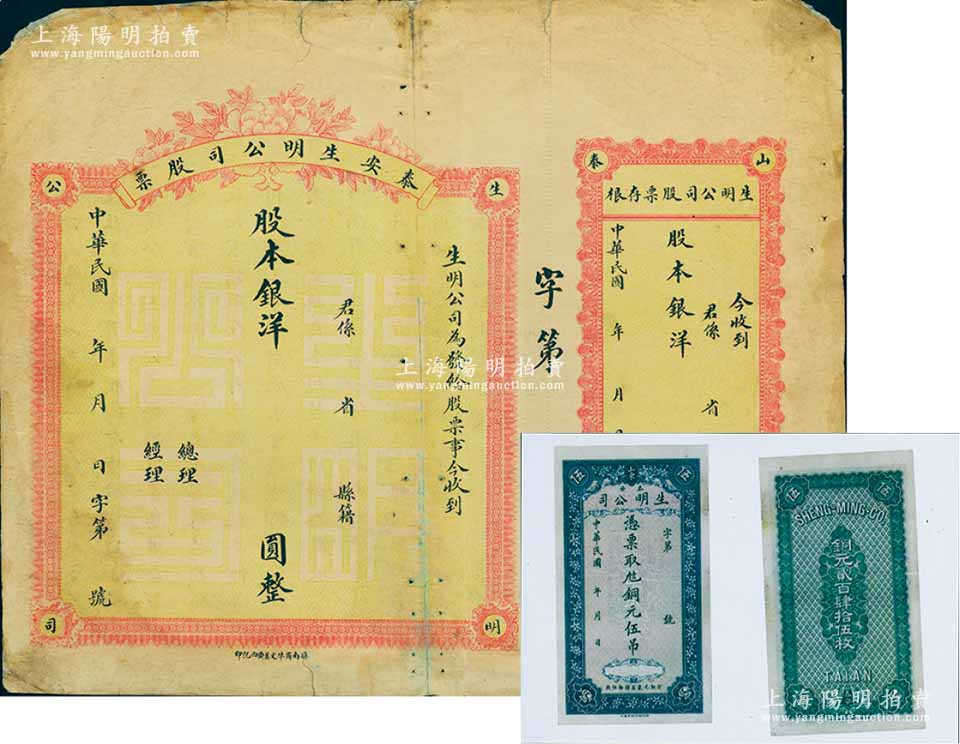 上海陽明拍賣
www.yangmingauction.com
上海陽明拍賣
www.yangmingauction.com
泰安生明公司股票
生
公
明
司
生明公司為發給股票事今收到
君係 省 縣籍
股本銀洋 圓整
總理
經理
中華民國 年 月 日 字第 號
字第
山
泰
生明公司股票存根
今收到
君係 省
股本銀洋
中華民國 年 月
上海陽明拍賣
www.yangmingauction.com
伍
伍
生明公司
字第 號
憑票取兌銅元伍吊
中華民國 年 月 日
伍
伍
SHENG-MING-CO.
銅元貳百肆拾伍枚
TAIAN
上海陽明拍賣
www.yangmingauction.com